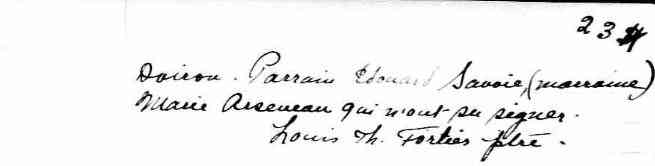 23
Doiron. Parrain Edouard Savoie, (marraine)
Marie Arseneau qui n'ont su signer.
Louis Th. Fortier ptre.